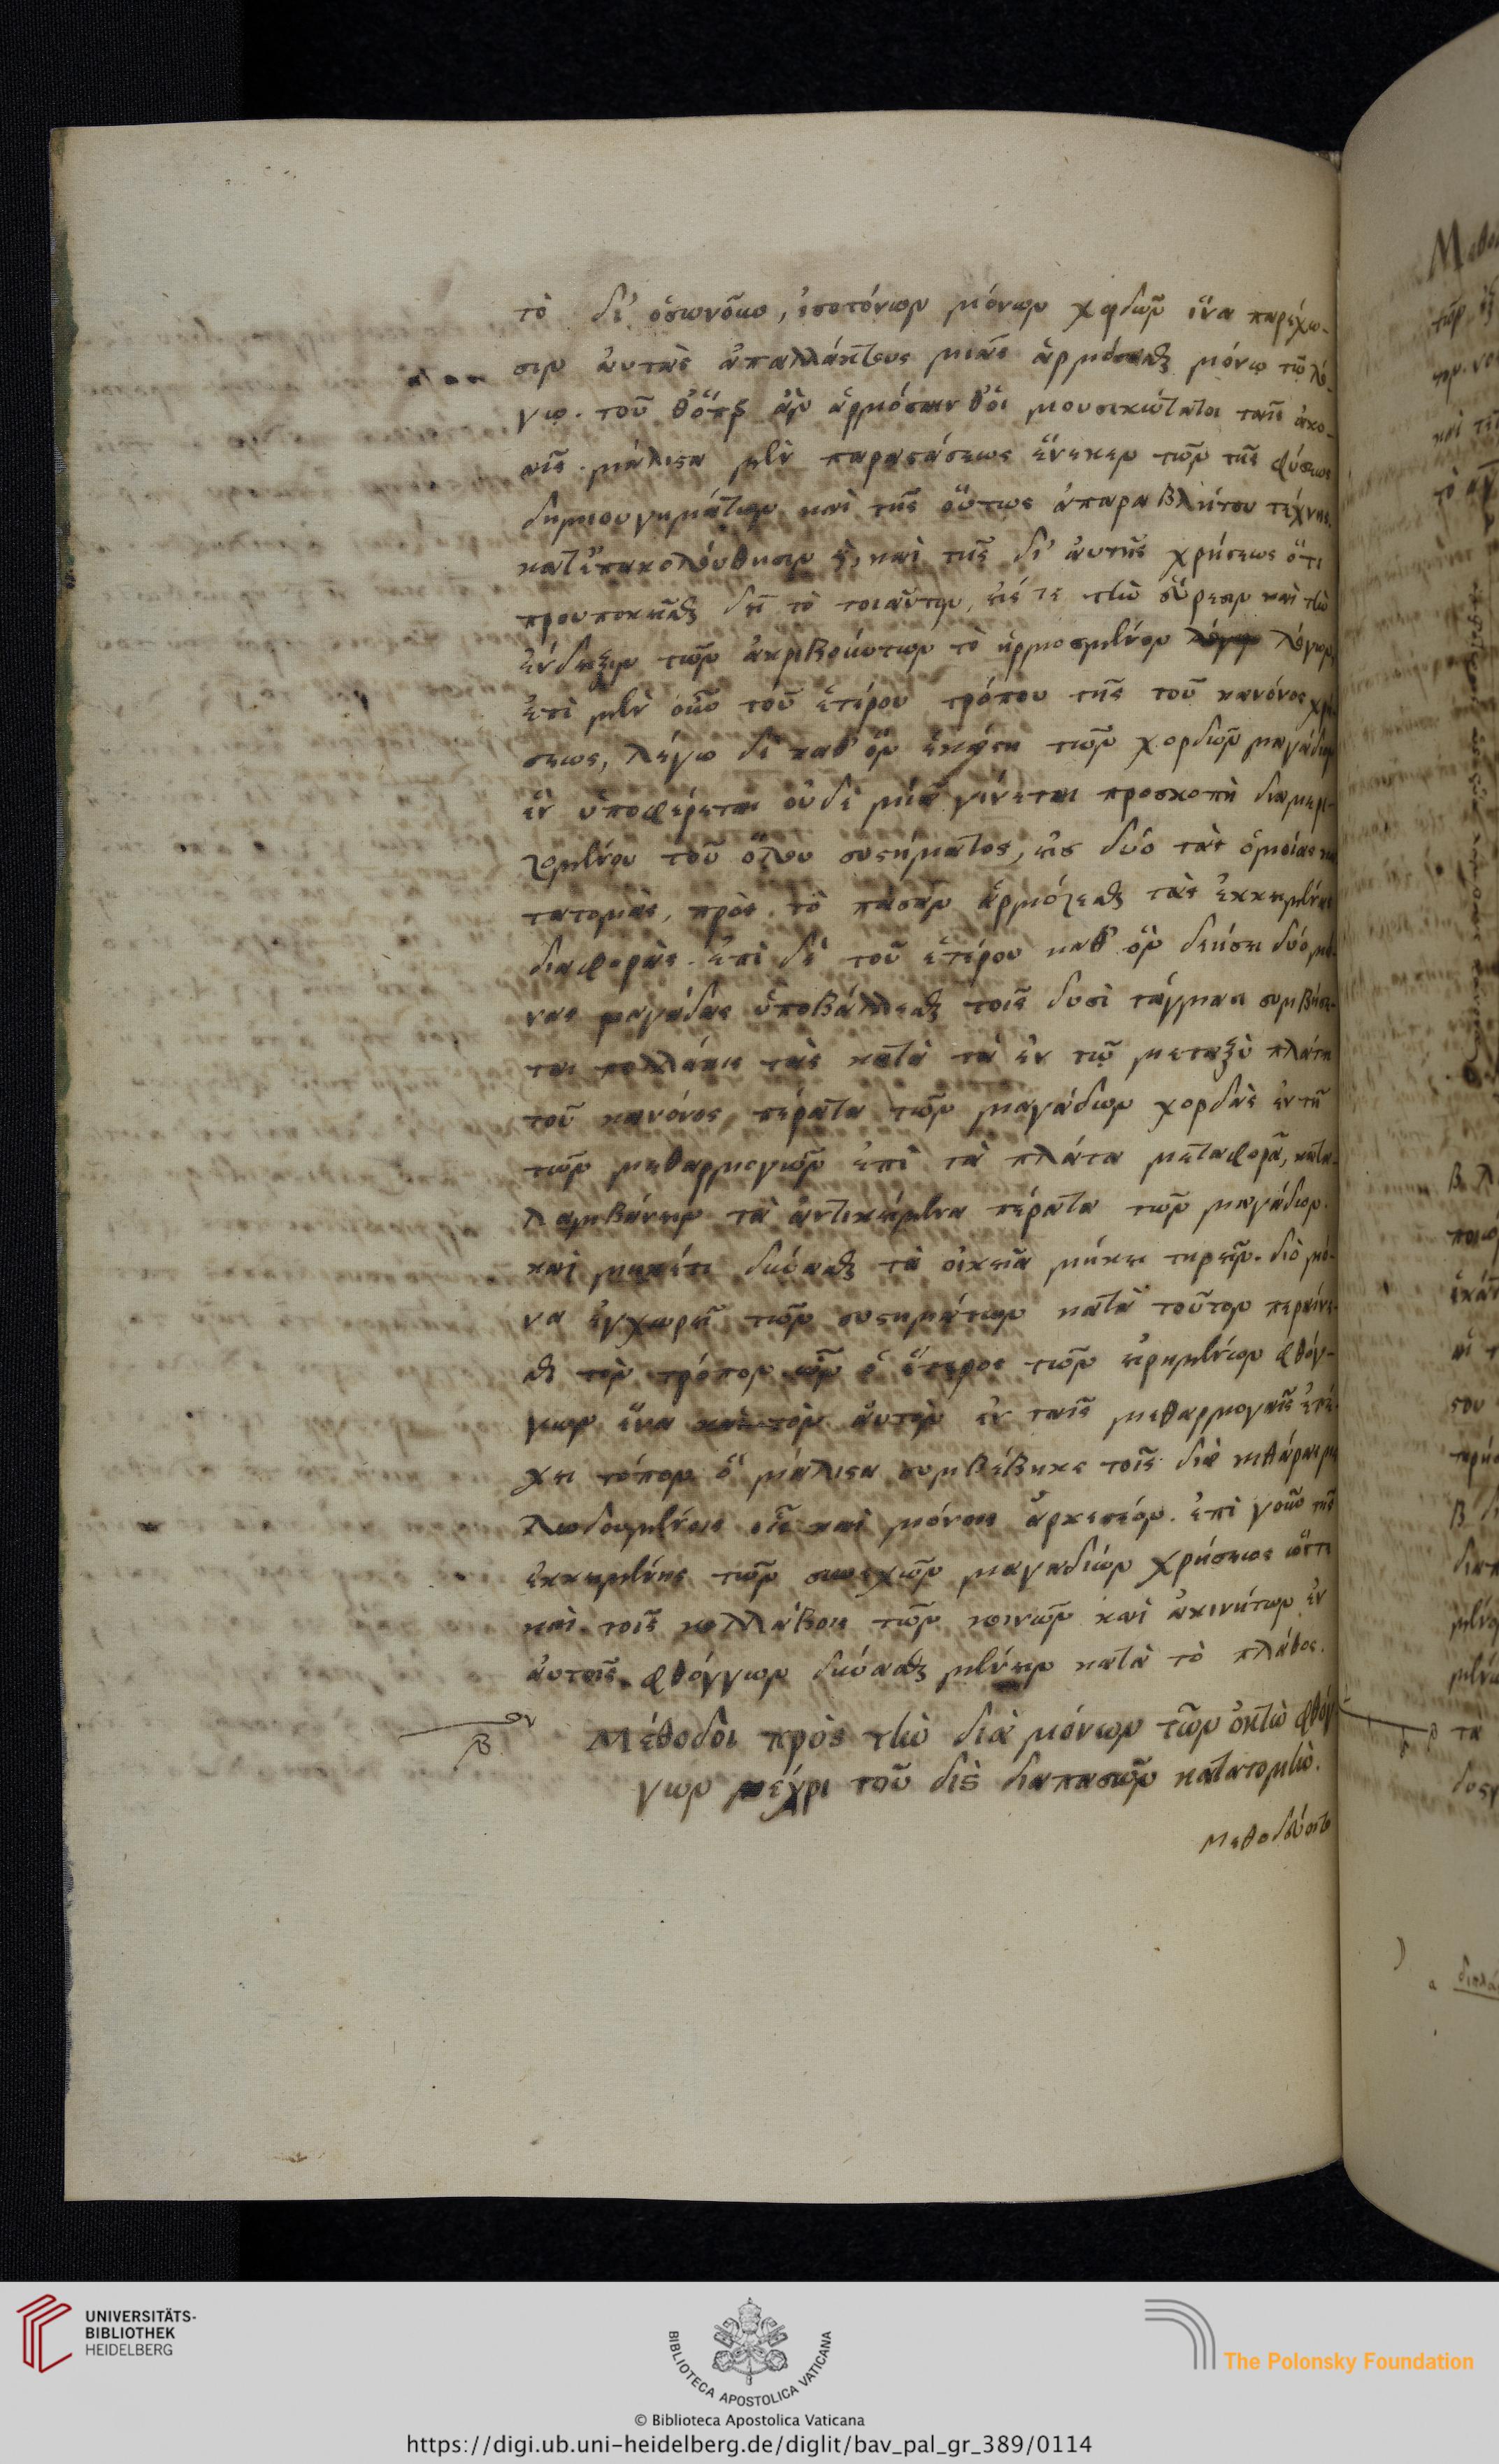 τὸ δι' ὁσωνοῦν, ἰσοτόνων μόνων χορδῶν ἵνα παρέχω-
σιν αὐτὰς ἀπαλλάκτους μιᾶς ἁρμόσασθαι μόνῳ τῷ λό-
γῳ. τοῦ θ' ὅπερ ἂν ἁρμόσαιν θ' οἱ μουσικώτατοι ταῖς ἀκο-
αῖς. μάλιστα μὲν παραστάσεως ἕνεκεν τῶν τῆς φύσεως
δημιουργημάτων καὶ τῆς οὕτως ἀπαραβλήτου τέχνης.
κατ' ἐπακολούθησιν καὶ τῆς δι' αὐτῆς χρήσεως ὅτι
προυποκεῖσθαι δεῖ τὸ τοιαῦτον, εἴς τε τὴν εὕρεσιν καὶ τὴν
ἔνδειξιν τῶν ἀκριβούντων τὸ ἡρμοσμένον λόγων
ἐπὶ μὲν οὖν τοῦ ἑτέρου τρόπου τῆς τοῦ κανόνος χρή-
σεως, λέγω δὲ καθ' ὃν ἑκάστη τῶν χορδῶν μαγάδιον
ἓν ὑποφέρεται οὐδὲ μία γίνεται προσκοπὴ διαμερι-
ζομένου τοῦ ὅλου συστήματος, εἰς δύο τὰς ὁμοίας κα-
τατομὰς, πρὸς τὸ πᾶσαν ἁρμόζεσθαι τὰς ἐκκειμένας
διαφοράς. ἐπὶ δὲ τοῦ ἑτέρου καθ' ὃν δεήσει δύο μό-
νας μαγάδας ὑποβάλλεσθαι τοῖς δυσὶ τάγμασι συμβήσε-
ται πολλάκις τὰς κατὰ τὰ ἐν τῷ μεταξὺ πλάτη
τοῦ κανόνος πέρατα τῶν μαγάδων χορδὰς ἐν τῇ
τῶν μεθαρμογῶν ἐπὶ τὰ πλάτα μεταφορᾷ, κατα-
λαμβάνειν τὰ ἀντικείμενα πέρατα τῶν μαγάδων.
καὶ μηκέτι δύνασθαι τὰ οἰκεῖα μήκει τηρεῖν. διὸ μό-
να ἐγχωρεῖ τῶν συστημάτων κατὰ τοῦτον περαίνε-
σθαι τὸν τρόπον ὧν ὁ ἕτερος τῶν εἰρημένων φθόγ-
γων ἕνα καὶ τὸν αὐτὸν ἐν ταῖς μεθαρμογαῖς ἐπέ-
χει τόπον ὃ μάλιστα συμβέβηκε τοῖς διὰ κιθάρας με-
λωδουμένοις οἷς καὶ μόνοις ἀρκεστέον. ἐπὶ γοῦν τῆς
ἐκκειμένης τῶν συνεχῶν μαγαδίων χρήσεως ὥστε
καὶ τοῖς κολλάβοις τῶν κοινῶν καὶ ἀκινήτων ἐν
αὐτοῖς φθόγγων δύνασθαι μένειν κατὰ τὸ πλάθος.
β Μέθοδοι πρὸς τὴν διὰ μόνων τῶν ὀκτὼ φθόγ-
γων μέχρι τοῦ δὶς διαπασῶν κατατομήν.
μεθοδεύοιτο
UNIVERSITÄTS-
BIBLIOTHEK
HEIDELBERG
BIBLIOTECA APOSTOLICA VATICANA
The Polonsky Foundation
© Biblioteca Apostolica Vaticana
https://digi.ub.uni-heidelberg.de/diglit/bav_pal_gr_389/0114